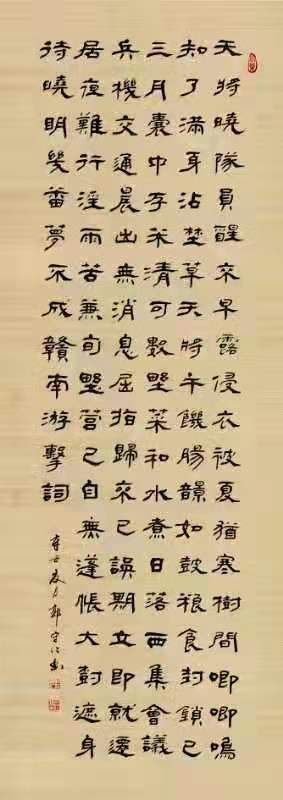 天將曉隊員醒來早露侵衣被夏猶寒樹間唧唧鳴
知了滿身沾埜草天將午饑腸韻如鼓粮食封鎖已
三月囊中存米清可數埜菜和水煮日落西集會議
兵機交通晨出無消息屈指歸來已誤期立即就遷
居夜難行淫雨苦兼旬埜營已自無蓬帳大尌遮身
待曉明幾番夢不成贛南游擊詞
夏月郭守書